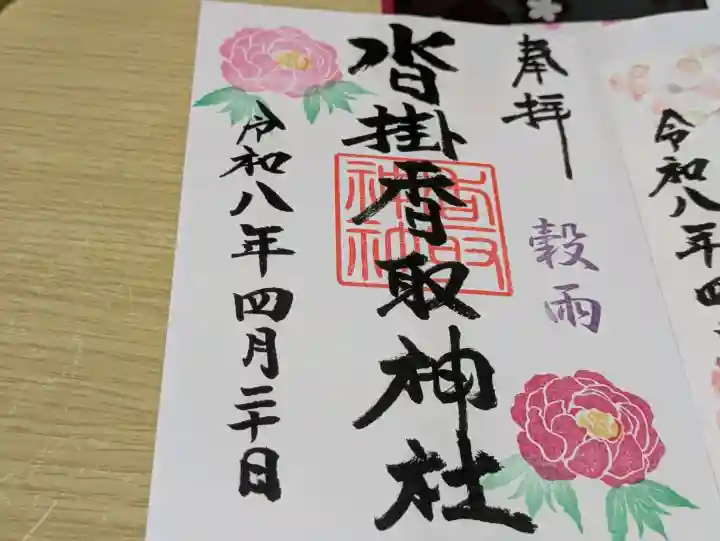 令和八年四
奉拝
穀雨
沓掛香取神社
香取
神社
令和八年四月二十日